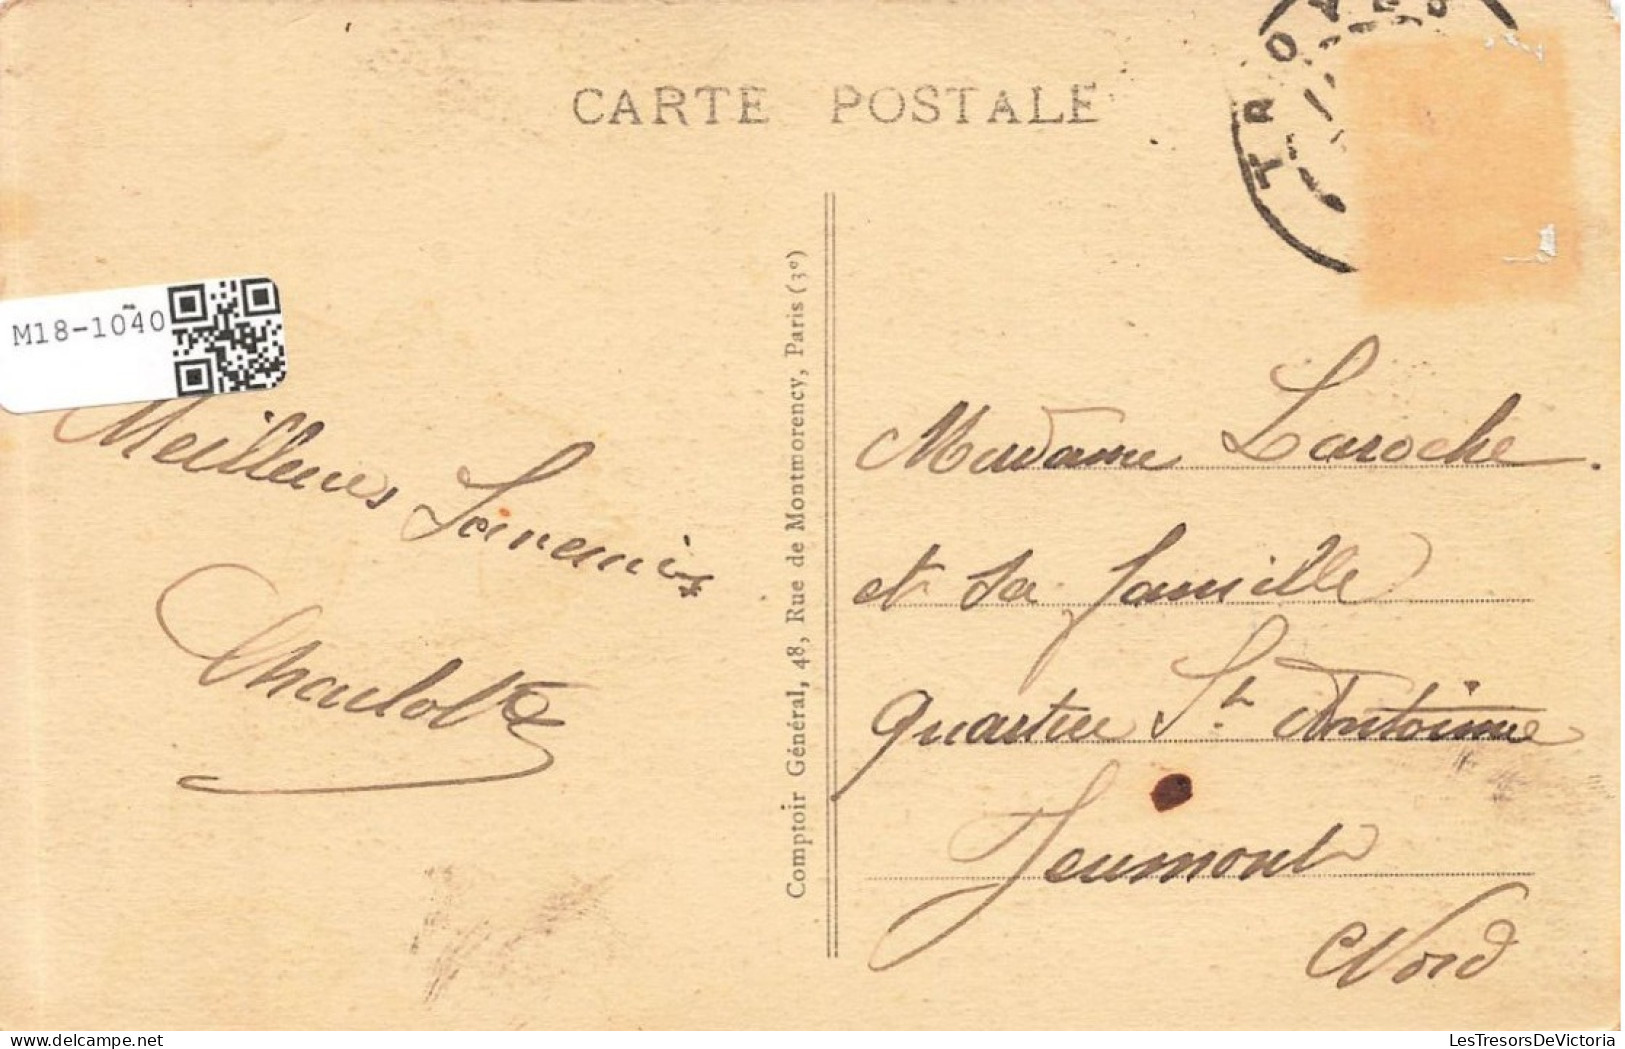 CARTE POSTALE
TROYES
M18-1040
Meilleurs Souvenirs
Charlotte
Comptoir Général, 48, Rue de Montmorency, Paris (3e)
Madame Laroche.
et sa famille
Quartier St Antoinne
Jeumont
Nord
LesTresorsDeVictoria.com